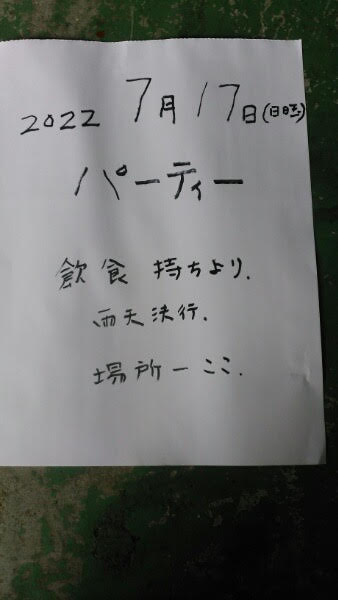 2022 7月17日(日時)
パーティー
飲食 持ちより.
雨天決行.
場所ーここ.